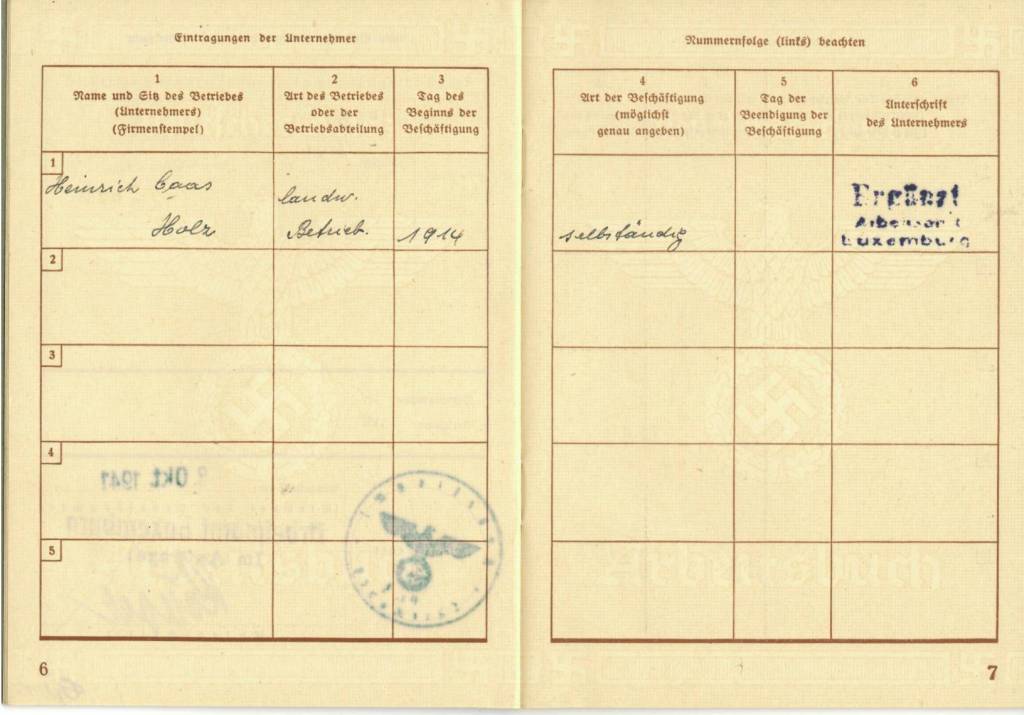 Eintragungen der Unternehmer
1
Name und Sitz des Betriebes
(Unternehmers)
(Firmenstempel)
2
Art des Betriebes
oder der
Betriebsabteilung
3
Tag des
Beginns der
Beschäftigung
1
Heinrich Caas
Holz
landw.
Betrieb.
1914
2
3
4
5
6
Nummernfolge (links) beachten
4
Art der Beschäftigung
(möglichst
genau angeben)
5
Tag der
Beendigung der
Beschäftigung
6
Unterschrift
des Unternehmers
selbständig
Ergänzt
Arbeitsamt
Luxemburg
7
Okt 1941